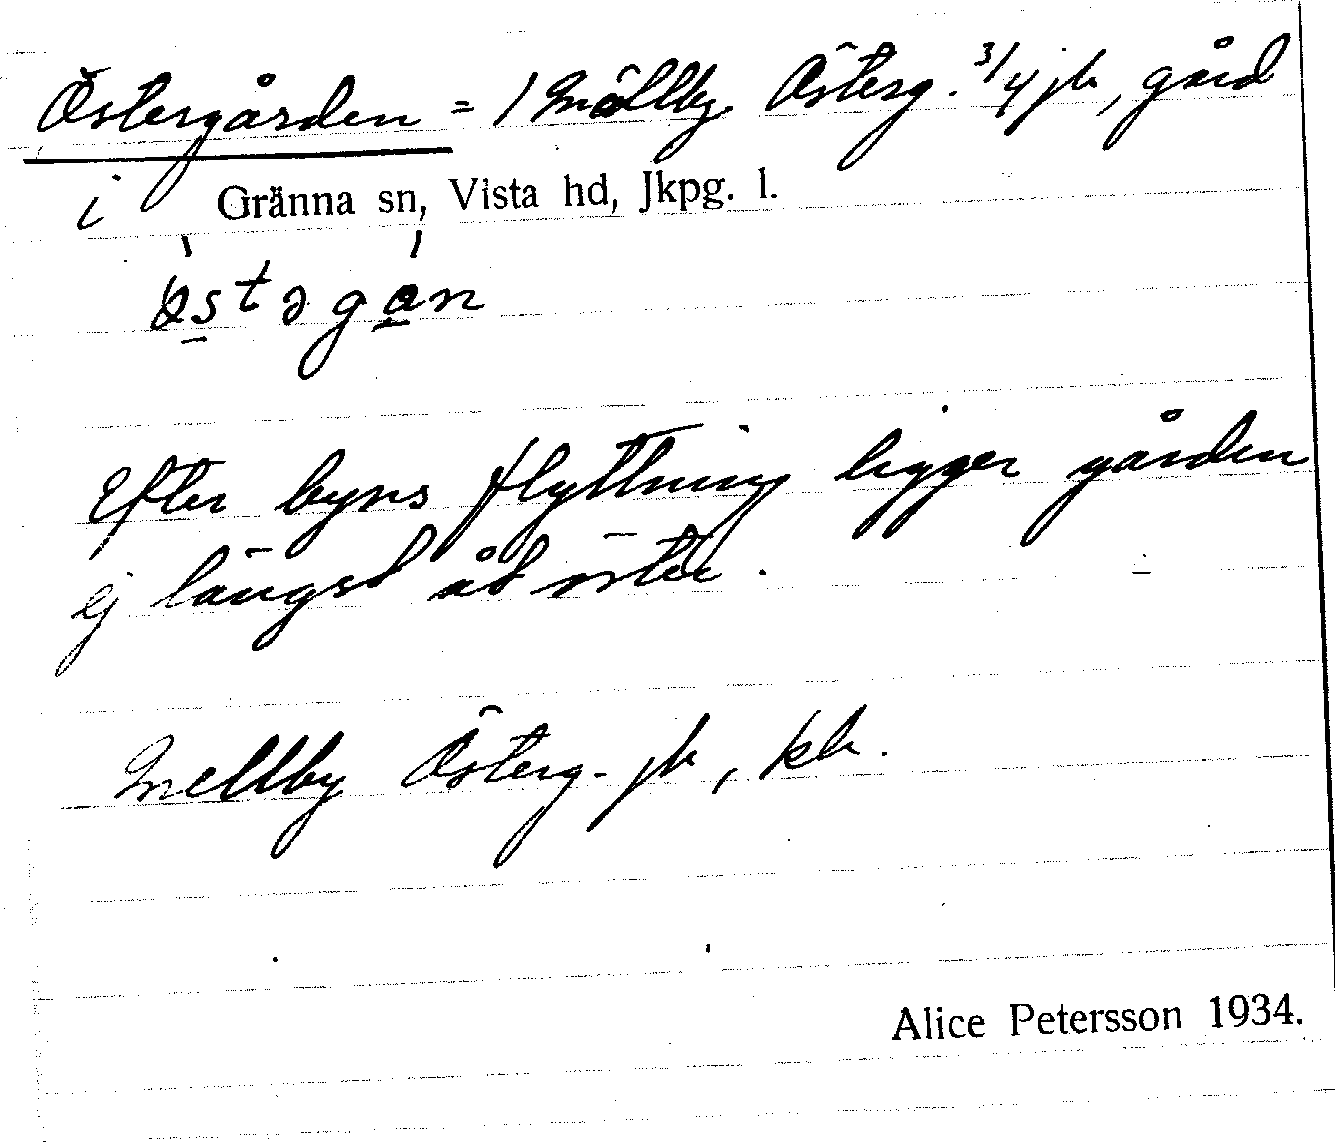 Östergården = 1 Mällby Österg. 3/4 jb, gård
i Gränna sn, Vista hd, Jkpg. l.
Efter byns flyttning ligger gården
ej längst åt öster.
Mellby Österg. jb, kb.
Alice Petersson 1934.